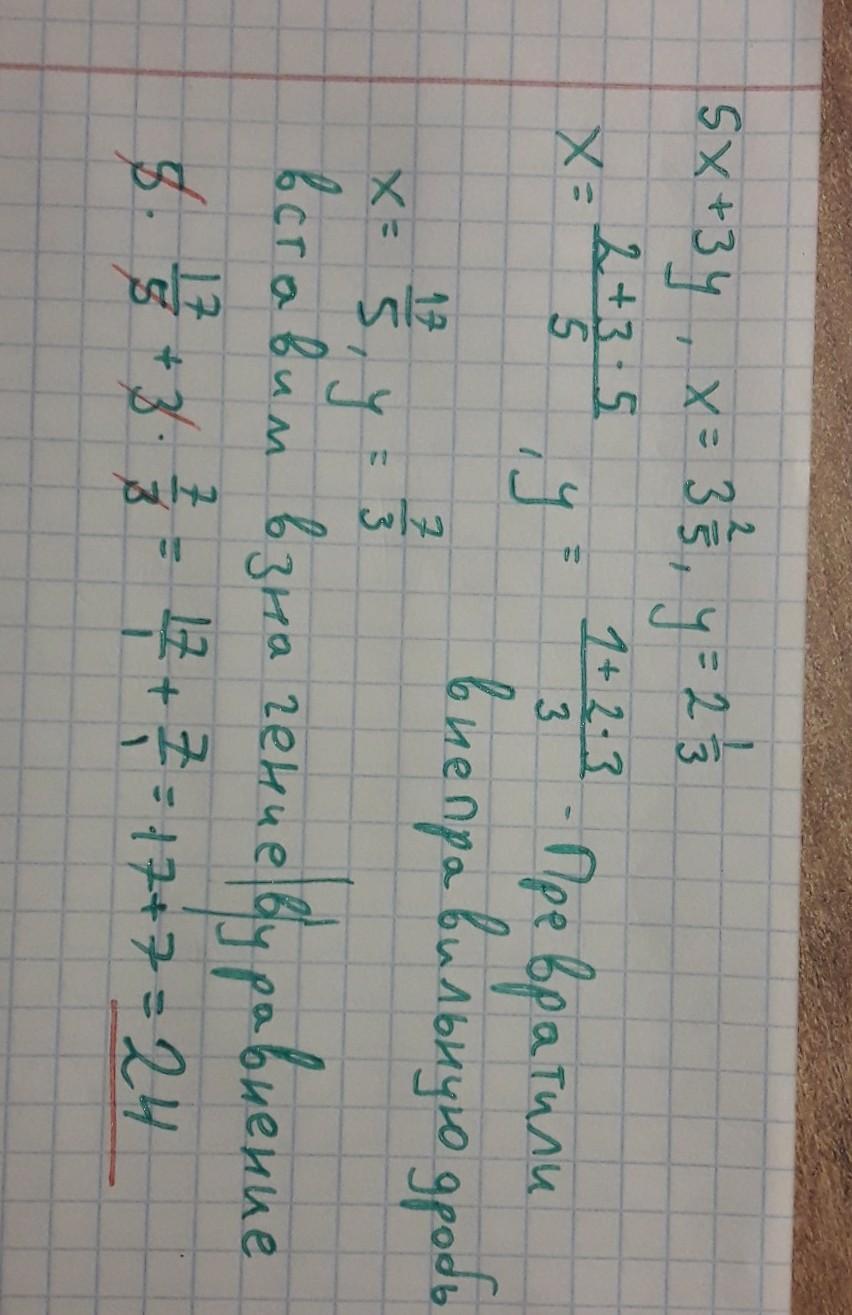 5x + 3y, x = 3 2/5, y = 2 1/3
x = 2+3·5/5, y = 1+2·3/3 - Превратили
в неправильную дробь
x = 17/5, y = 7/3
вставим взначение в уравнение
5 · 17/5 + 3 · 7/3 = 17/1 + 7/1 = 17+7 = 24